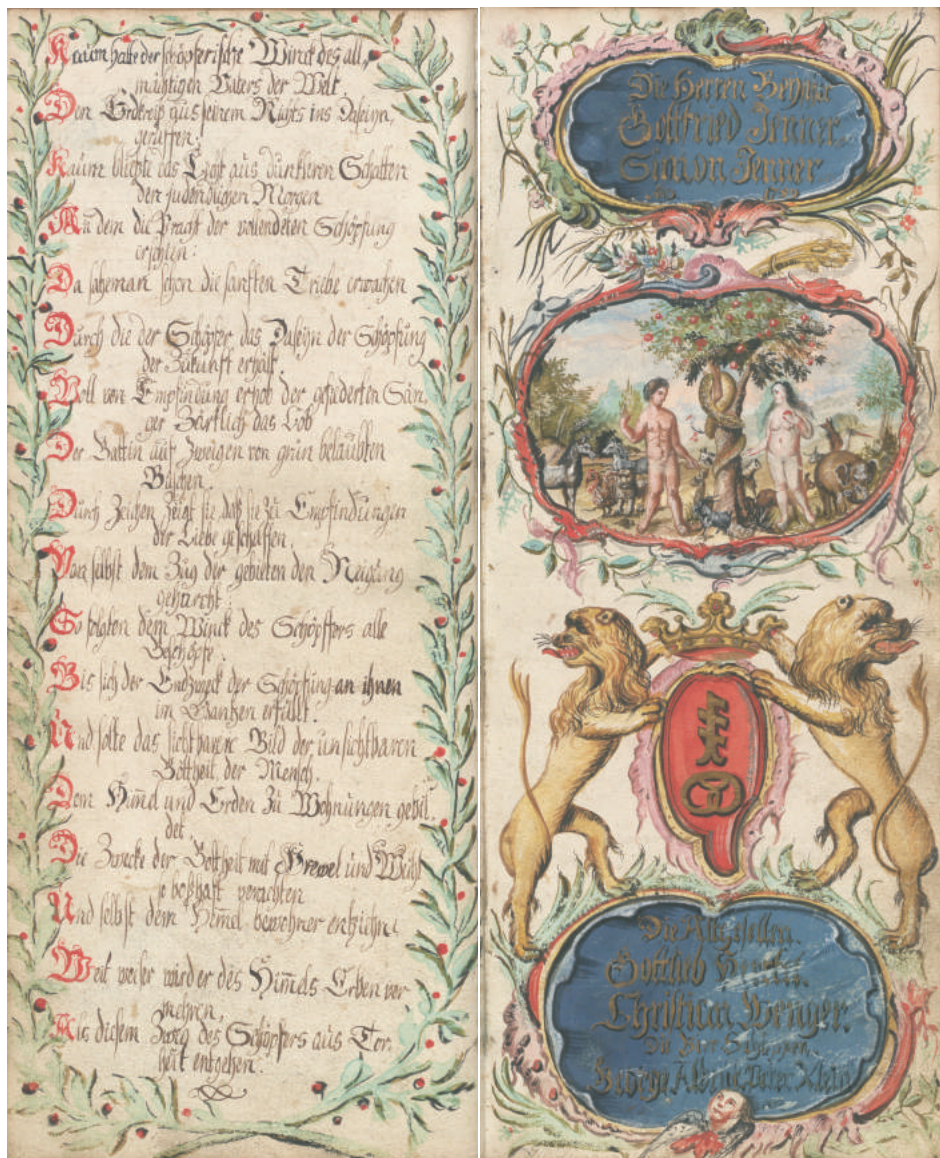 Kaum hatte der schöpferische Winck des all,
mächtigen Vaters der Welt.
Den Erdkreiß aus seinem Nichts ins Daseyn,
geruffen.
Kaum blickte das Licht aus dunkleren Schatten
den jugendlichen Morgen
An dem die Pracht der vollendeten Schöpfung
erschien:
Da sahe man schon die sanften Triebe erwachen
Durch die der Schöpfer das Daseyn der Schöpfung
der Zukunft erhält.
Voll von Empfindung erhob der gefiderten Sän,
ger Zärtlich das Lob
Der Gattin auf Zweigen von grün belaubten
Büschen.
Durch Zeichen zeigt sie, daß sie zu Empfindungen
der Liebe geschaffen.
Von selbst dem Zug der gebieten den Neigung
gehurcht.
So folgten dem Winck des Schöpffers alle
Geschöpfe
Bis sich der Endzweck der Schöpfung an ihnen
im Gantzen erfüllt.
Und solte das sichtbarere Bild der unsichtbaren
Gottheit, der Mensch.
Dem Him̅el und Erden zu Wohnungen gebil,
det.
Die Zwecke der Gottheit mit Frewel und
boßhaft verachten
Und selbst dem Him̅el bewohner entziehn:
Weit weiser wird er des Him̅els Erben ver
mehren,
Als diesem Zweg des Schöpfers aus Tor,
heit entgehen.
Die Herren Beysitzer
Gottfried Jenner.
Simon Jenner
Die Altgesellen.
Gottlieb
Christian Wenger.
Die
George Peter Klein